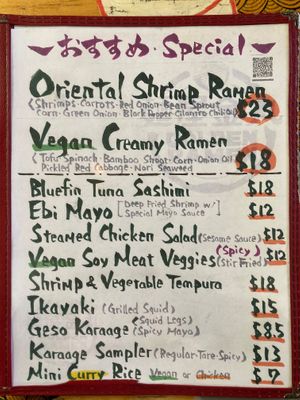 おすすめ・Special
Oriental Shrimp Ramen
(Shrimps・Carrots・Red Onion・Bean Sprout
Corn・Green Onion・Black Pepper・Cilantro・Chili Oil) $23
Vegan Creamy Ramen
(Tofu・Spinach・Bamboo Shoot・Corn・Onion Oil
Pickled Red Cabbage・Nori Seaweed) $18
Bluefin Tuna Sashimi $18
Ebi Mayo [Deep Fried Shrimp w/ Special Mayo Sauce] $12
Steamed Chicken Salad (Sesame Sauce) $12
Vegan Soy Meat Veggies (Spicy) (Stir Fried) $12
Shrimp & Vegetable Tempura $18
Ikayaki (Grilled Squid) $15
Geso Karaage (Squid Legs) (Spicy Mayo) $8.5
Karaage Sampler (Regular・Tare・Spicy) $13
Mini Curry Rice Vegan or Chicken $7